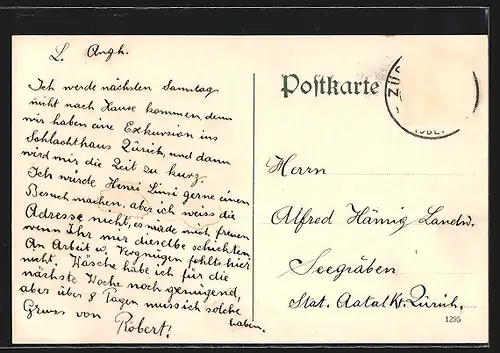 L. Angh.
Ich werde nächsten Samstag
nicht nach Hause kommen, denn
wir haben eine Exkursion ins
Schlachthaus Zürich, und dann
wird mir die Zeit zu kurz.
Ich würde Henri Linsi gerne einen
Besuch machen, aber ich weiss die
Adresse nicht, es würde mich freuen
wenn Ihr mir dieselbe schickten.
An Arbeit u. Vergnügen fehlts hier
nicht. Wäsche habe ich für die
nächste Woche noch genügend,
aber über 8 Tagen muss ich solche
haben.
Gruss von Robert!
Postkarte
ZÜ
Herrn
Alfred Hämig Landw.
Seegräben
Stat. Aatal Kt. Zürich.
1295